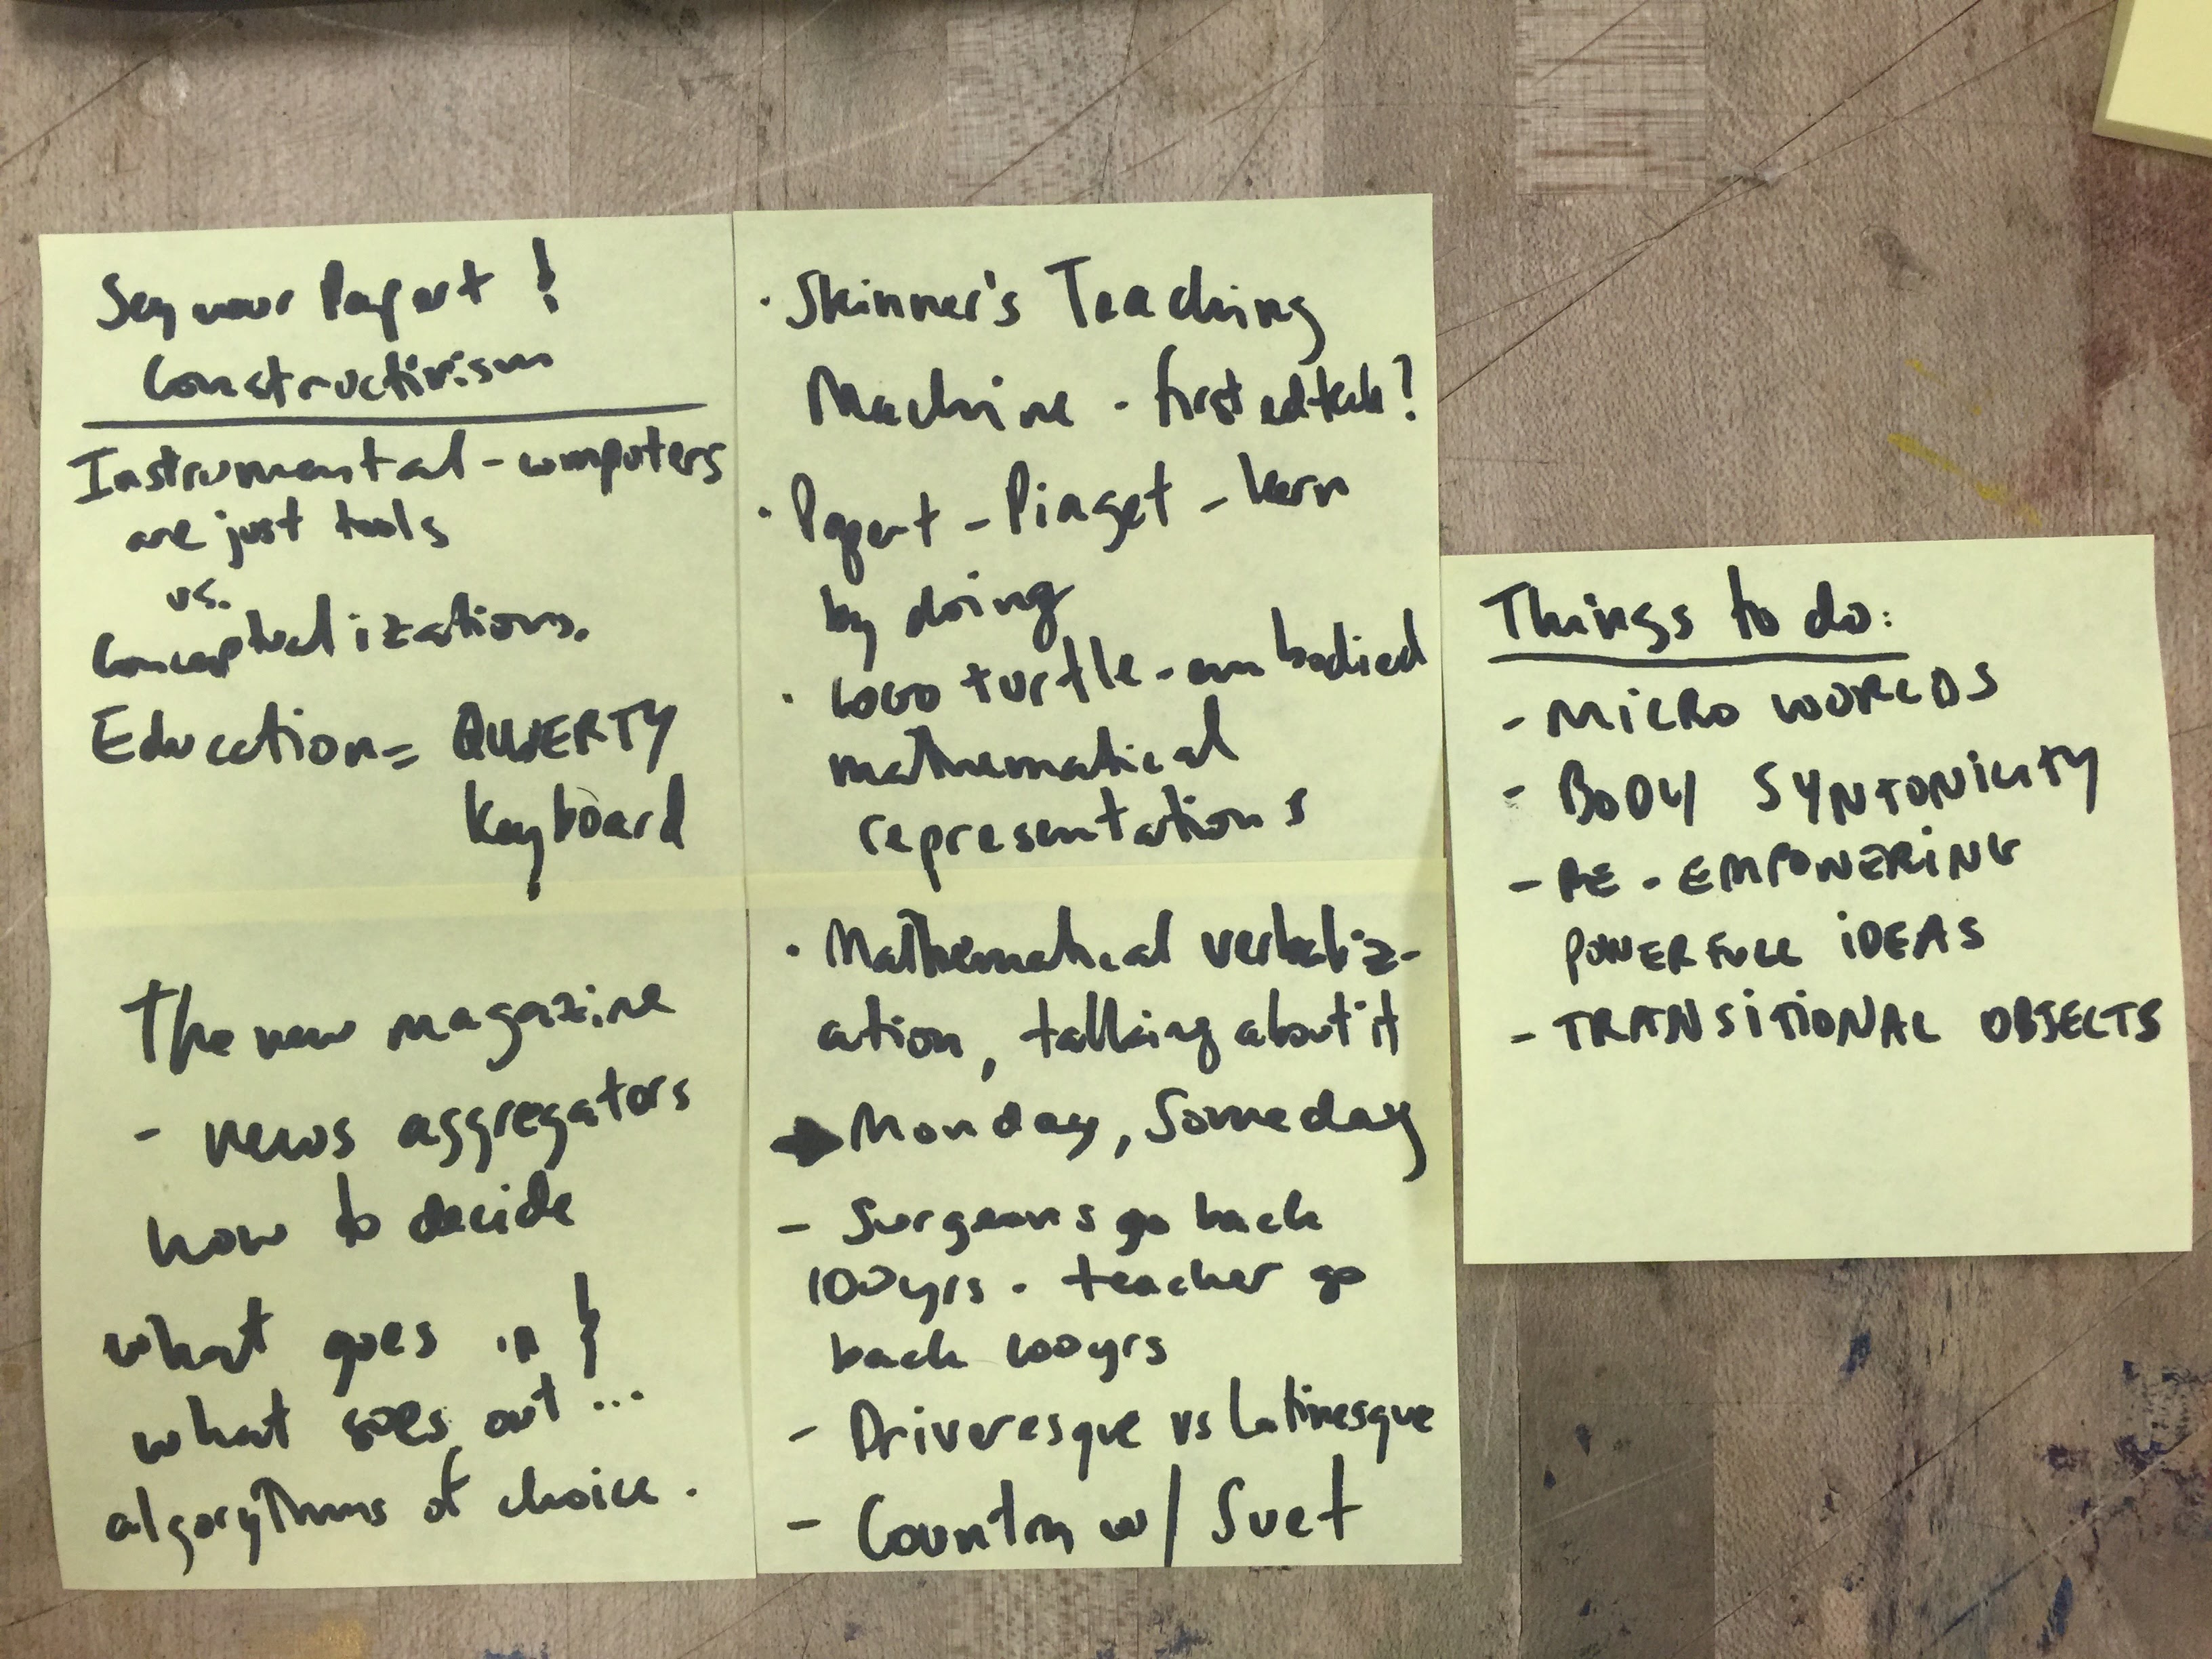 Seymour Papert!
Constructivism
Instrumental - computers
are just tools
vs.
Conceptualizations.
Education = QWERTY
keyboard
The new magazine
- news aggregators
how to decide
what goes in
what goes out ...
algorythms of choice.
· Skinner's Teaching
Machine - first edtech?
· Papert - Piaget - learn
by doing
· LOGO turtle - embodied
mathematical
representations
· Mathematical verbaliz-
ation, talking about it
→ Monday, Someday
- Surgeons go back
100yrs. teacher go
back 100yrs
- Driveresque vs Latinesque
- Country w/
Things to do:
- MICRO WORLDS
- BODY SYNTONICITY
- RE-EMPOWERING
POWERFULL IDEAS
- TRANSITIONAL OBJECTS